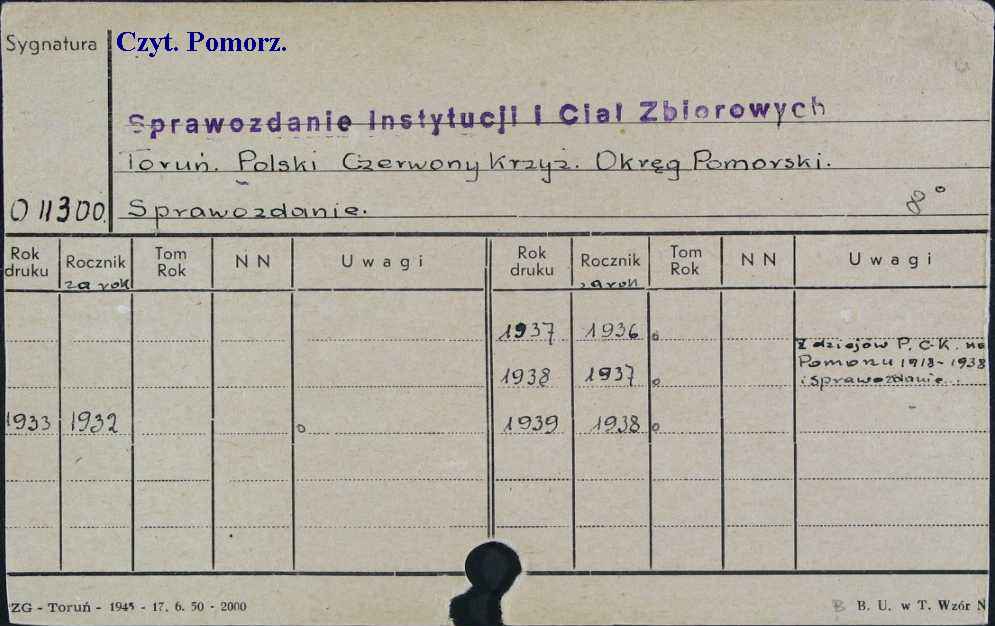 Sygnatura Czyt. Pomorz.
Sprawozdanie Instytucji i Ciał Zbiorowych
Toruń. Polski Czerwony Krzyż. Okręg Pomorski.
O 11300. Sprawozdanie. 8°
Rok druku Rocznik za rok Tom Rok N N Uwagi Rok druku Rocznik za rok Tom Rok N N Uwagi
1937 1936 o
Z dziejów P.C.K. na
Pomorzu 1918-1938
i sprawozdanie.
1938 1937 o
1933 1932 o 1939 1938 o
ZG - Toruń - 1945 - 17. 6. 50 - 2000 B B. U. w T. Wzór N